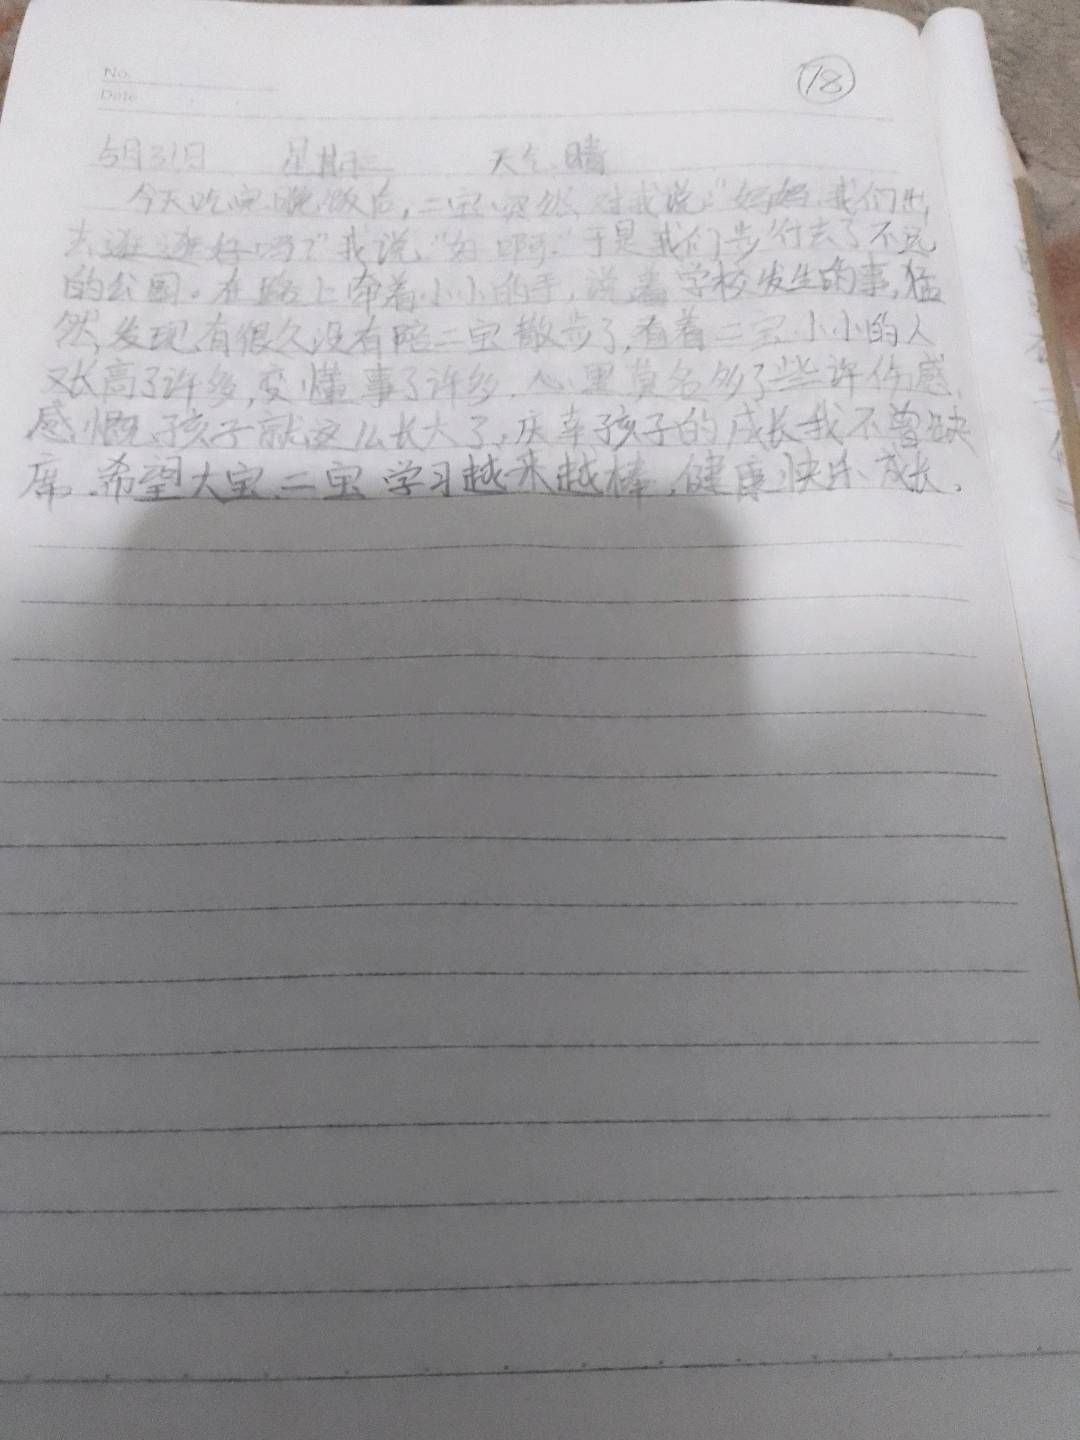 No.
Date
18
5月31日 星期三 天气:晴
今天吃完晚饭后,二宝突然对我说:"妈妈,我们出
去逛逛好吗?"我说:"好啊。"于是我们步行去了不远
的公园。在路上牵着小小的手,说着学校发生的事,猛
然发现有很久没有陪二宝散步了,看着二宝小小的人
又长高了许多,变懂事了许多,心里莫名多了些许伤感,
感慨孩子就这么长大了,庆幸孩子的成长我不曾缺
席。希望大宝、二宝学习越来越棒,健康快乐成长。